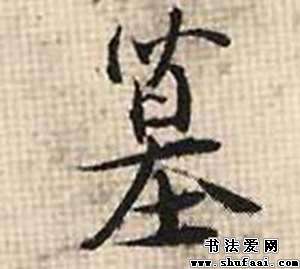 墓
书法爱网
www.shufaai.com